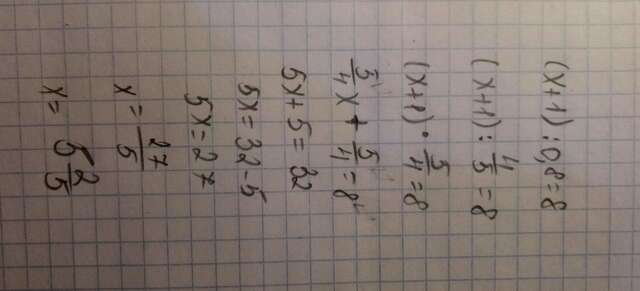 (x+1) : 0,8 = 8
(x+1) : 4/5 = 8
(x+1) · 5/4 = 8
5/4 x + 5/4 = 8
5x + 5 = 32
5x = 32 - 5
5x = 27
x = 27/5
x = 5 2/5